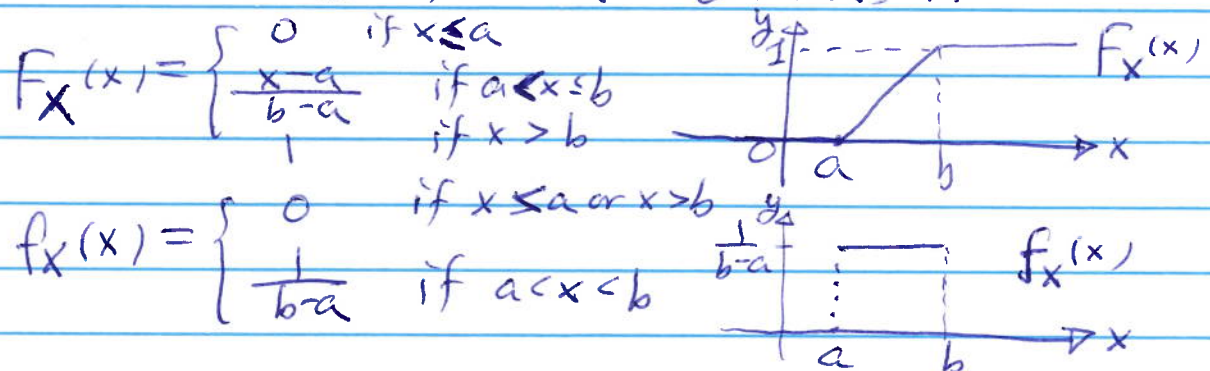 F_X(x) = { 0 if x≤a
x-a / b-a if a<x≤b
1 if x > b
y 1 F_X(x)
0 a b x
f_X(x) = { 0 if x ≤a or x>b
1 / b-a if a<x<b
y 1 / b-a f_X(x)
a b x